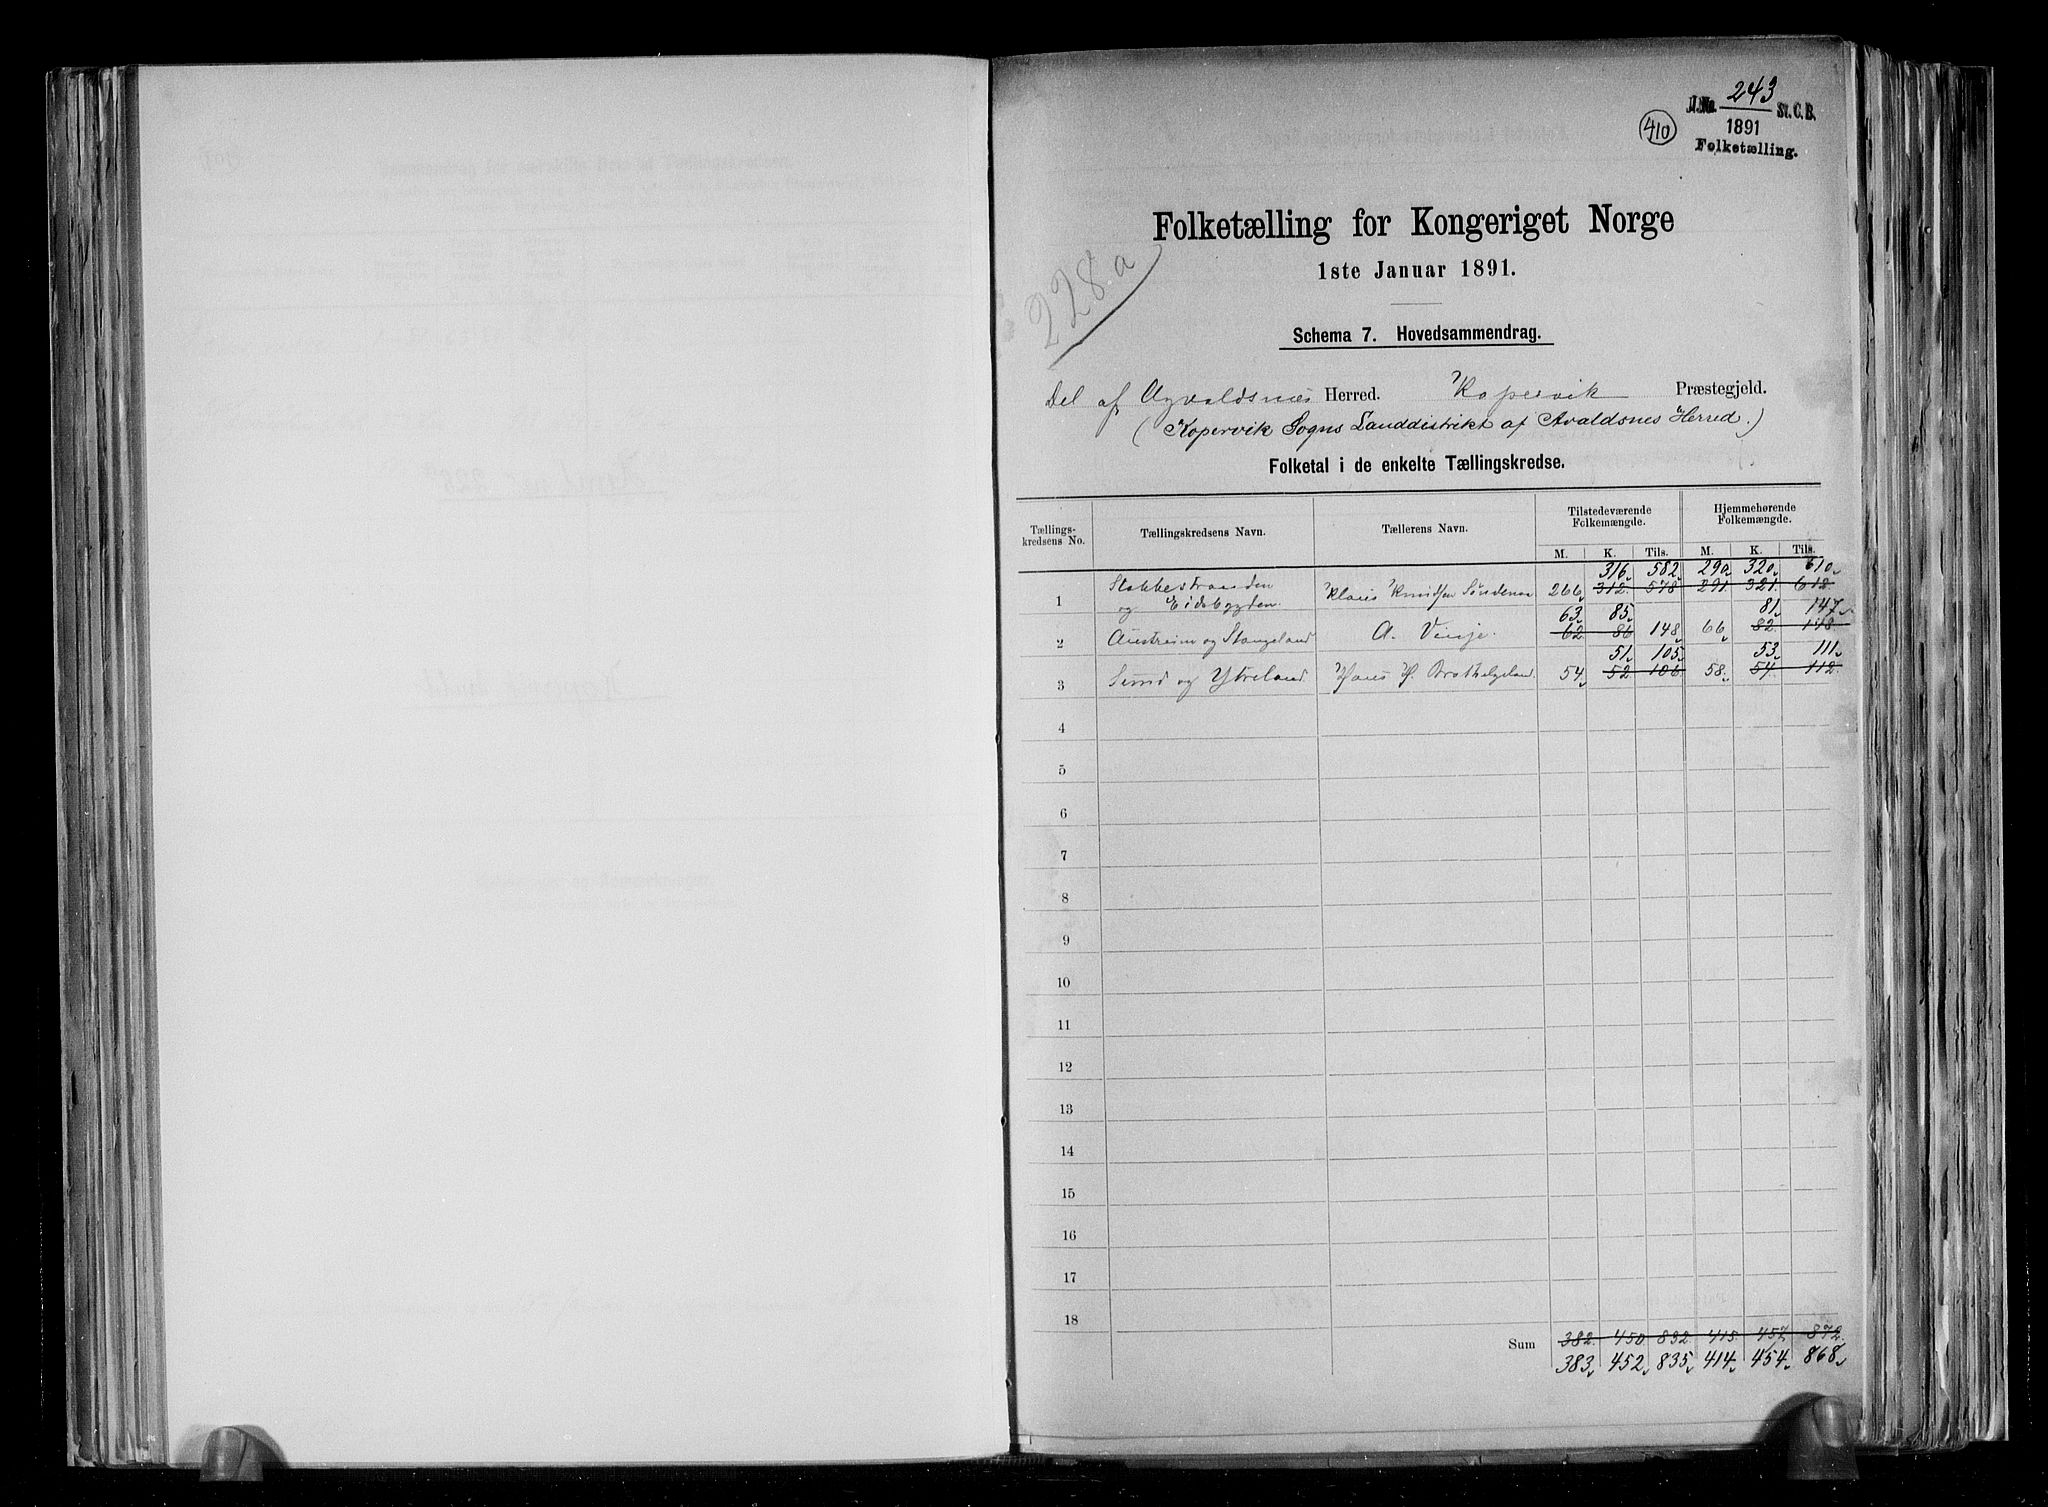 J.No. 243 St.C.B.
410
1891
Folketælling.
Folketælling for Kongeriget Norge
1ste Januar 1891.
228a
Schema 7. Hovedsammendrag.
Del af Agvaldsnes Herred. Kopervik Præstegjeld.
(Kopervik Sogns Landdistrikt af Avaldsnes Herred.)
Folketal i de enkelte Tællingskredse.
Tællings-kredsens No. Tællingskredsens Navn. Tællerens Navn. Tilstedeværende Folkemængde. Hjemmehørende Folkemængde.
M. K. Tils. M. K. Tils.
316 582 290 320 610
1 Stokkestranden og Eidsbygden. Klaus Knudsen 266 312 578 291 321 612
63 85 81 147
2 Austreim og Stangeland A. Vinje. 62 86 148 66 82 148
51 105 53 111
3 Sund og Ytreland Hans H. 54 52 106 58 54 112
4
5
6
7
8
9
10
11
12
13
14
15
16
17
18
Sum 382 450 832 415 457 872
383 452 835 414 454 868